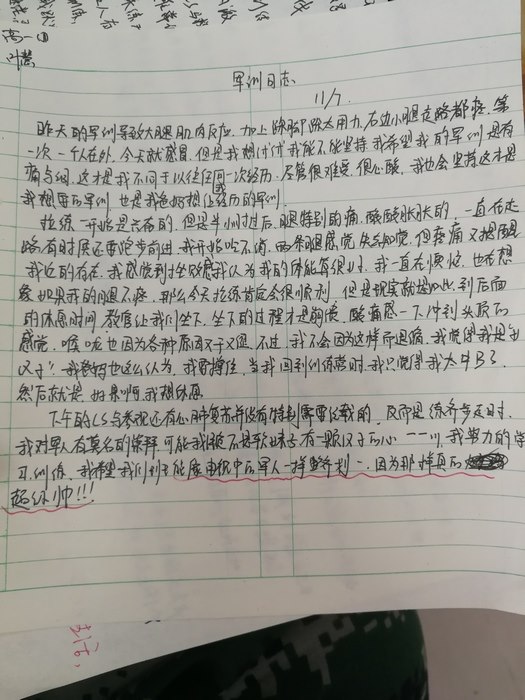 高一①
军训日志
11/7.
昨天的军训导致大腿肌肉反应,加上踩脚踩太用力,右边小腿走路都疼,第
一次一个人在外,今天就感冒,但是我想讨讨我能不能坚持,我希望我的军训是有
痛点的,这才是我不同于以往任何一次经历,尽管很难受,很心酸,我也会坚持,这才是
我想要的军训,也是我自始想经历的军训。
拉练一开始是兴奋的,但是半小时过后,腿特别的痛,酸酸胀胀的,一直在走
路有时候还要跑步前进,我开始吃不消,两条腿感觉失去知觉,但疼痛又提醒
我它的存在,我感觉到挫败感,我认为我的体能算很好,我一直在懊恼,也在想
象如果我的腿不疼,那么今天拉练肯定会很顺利,但是现实就是如此,到后面
的休息时间,教官让我们坐下,坐下的过程才是崩溃,酸痛感一下冲到头顶的
感觉,喉咙也因为各种原因又干又涩,不过,我不会因为这样而退缩,我觉得我是女
汉子,我爸妈也这么认为,我要撑住,当我回到训练营时,我只觉得我太牛B了,
然后就是好累啊,我想休息
下午的CS与参观还有心肺复苏并没有特别需要记载的,反而是练齐步走时,
我对军人有莫名的崇拜,可能我很不是软妹子有一颗汉子的心~~~~,我努力的学
习训练,我希望我们列子能像电视中的军人一样整齐划一,因为那样真的
超级帅!!!